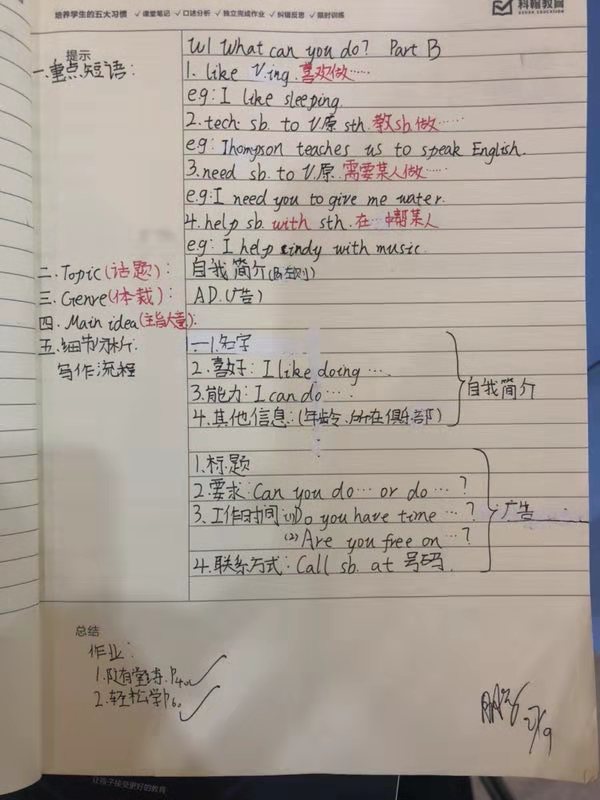 培养学生的五大习惯 ✓课堂笔记 ✓口述分析 ✓独立完成作业 ✓纠错反思 ✓限时训练
科翰教育
提示
U1 What can you do? Part B
一.重点短语:
1. like V.ing.喜欢做……
eg:I like sleeping.
2.tech sb. to V原 sth.教sb.做……
eg: Thompson teaches us to speak English.
3.need sb. to V.原.需要某人做……
eg:I need you to give me water.
4.help sb. with sth.在…中帮某人
eg: I help cindy with music.
二.Topic(话题): 自我简介
三.Genre(体裁): AD.(广告)
四.Main idea(主旨大意):
五.细节分析.
写作流程
一1.名字
2.喜好: I like doing ….
3.能力: I can do ….
4.其他信息:(年龄、所在俱乐部)
自我简介
1.标题
2.要求: Can you do… or do… ?
3.工作时间 (1)Do you have time …?
(2) Are you free on …?
4.联系方式: Call sb. at 号码.
广告
总结
作业:
1.随堂练.P4
2.轻松学P6
让孩子接受更好的教育